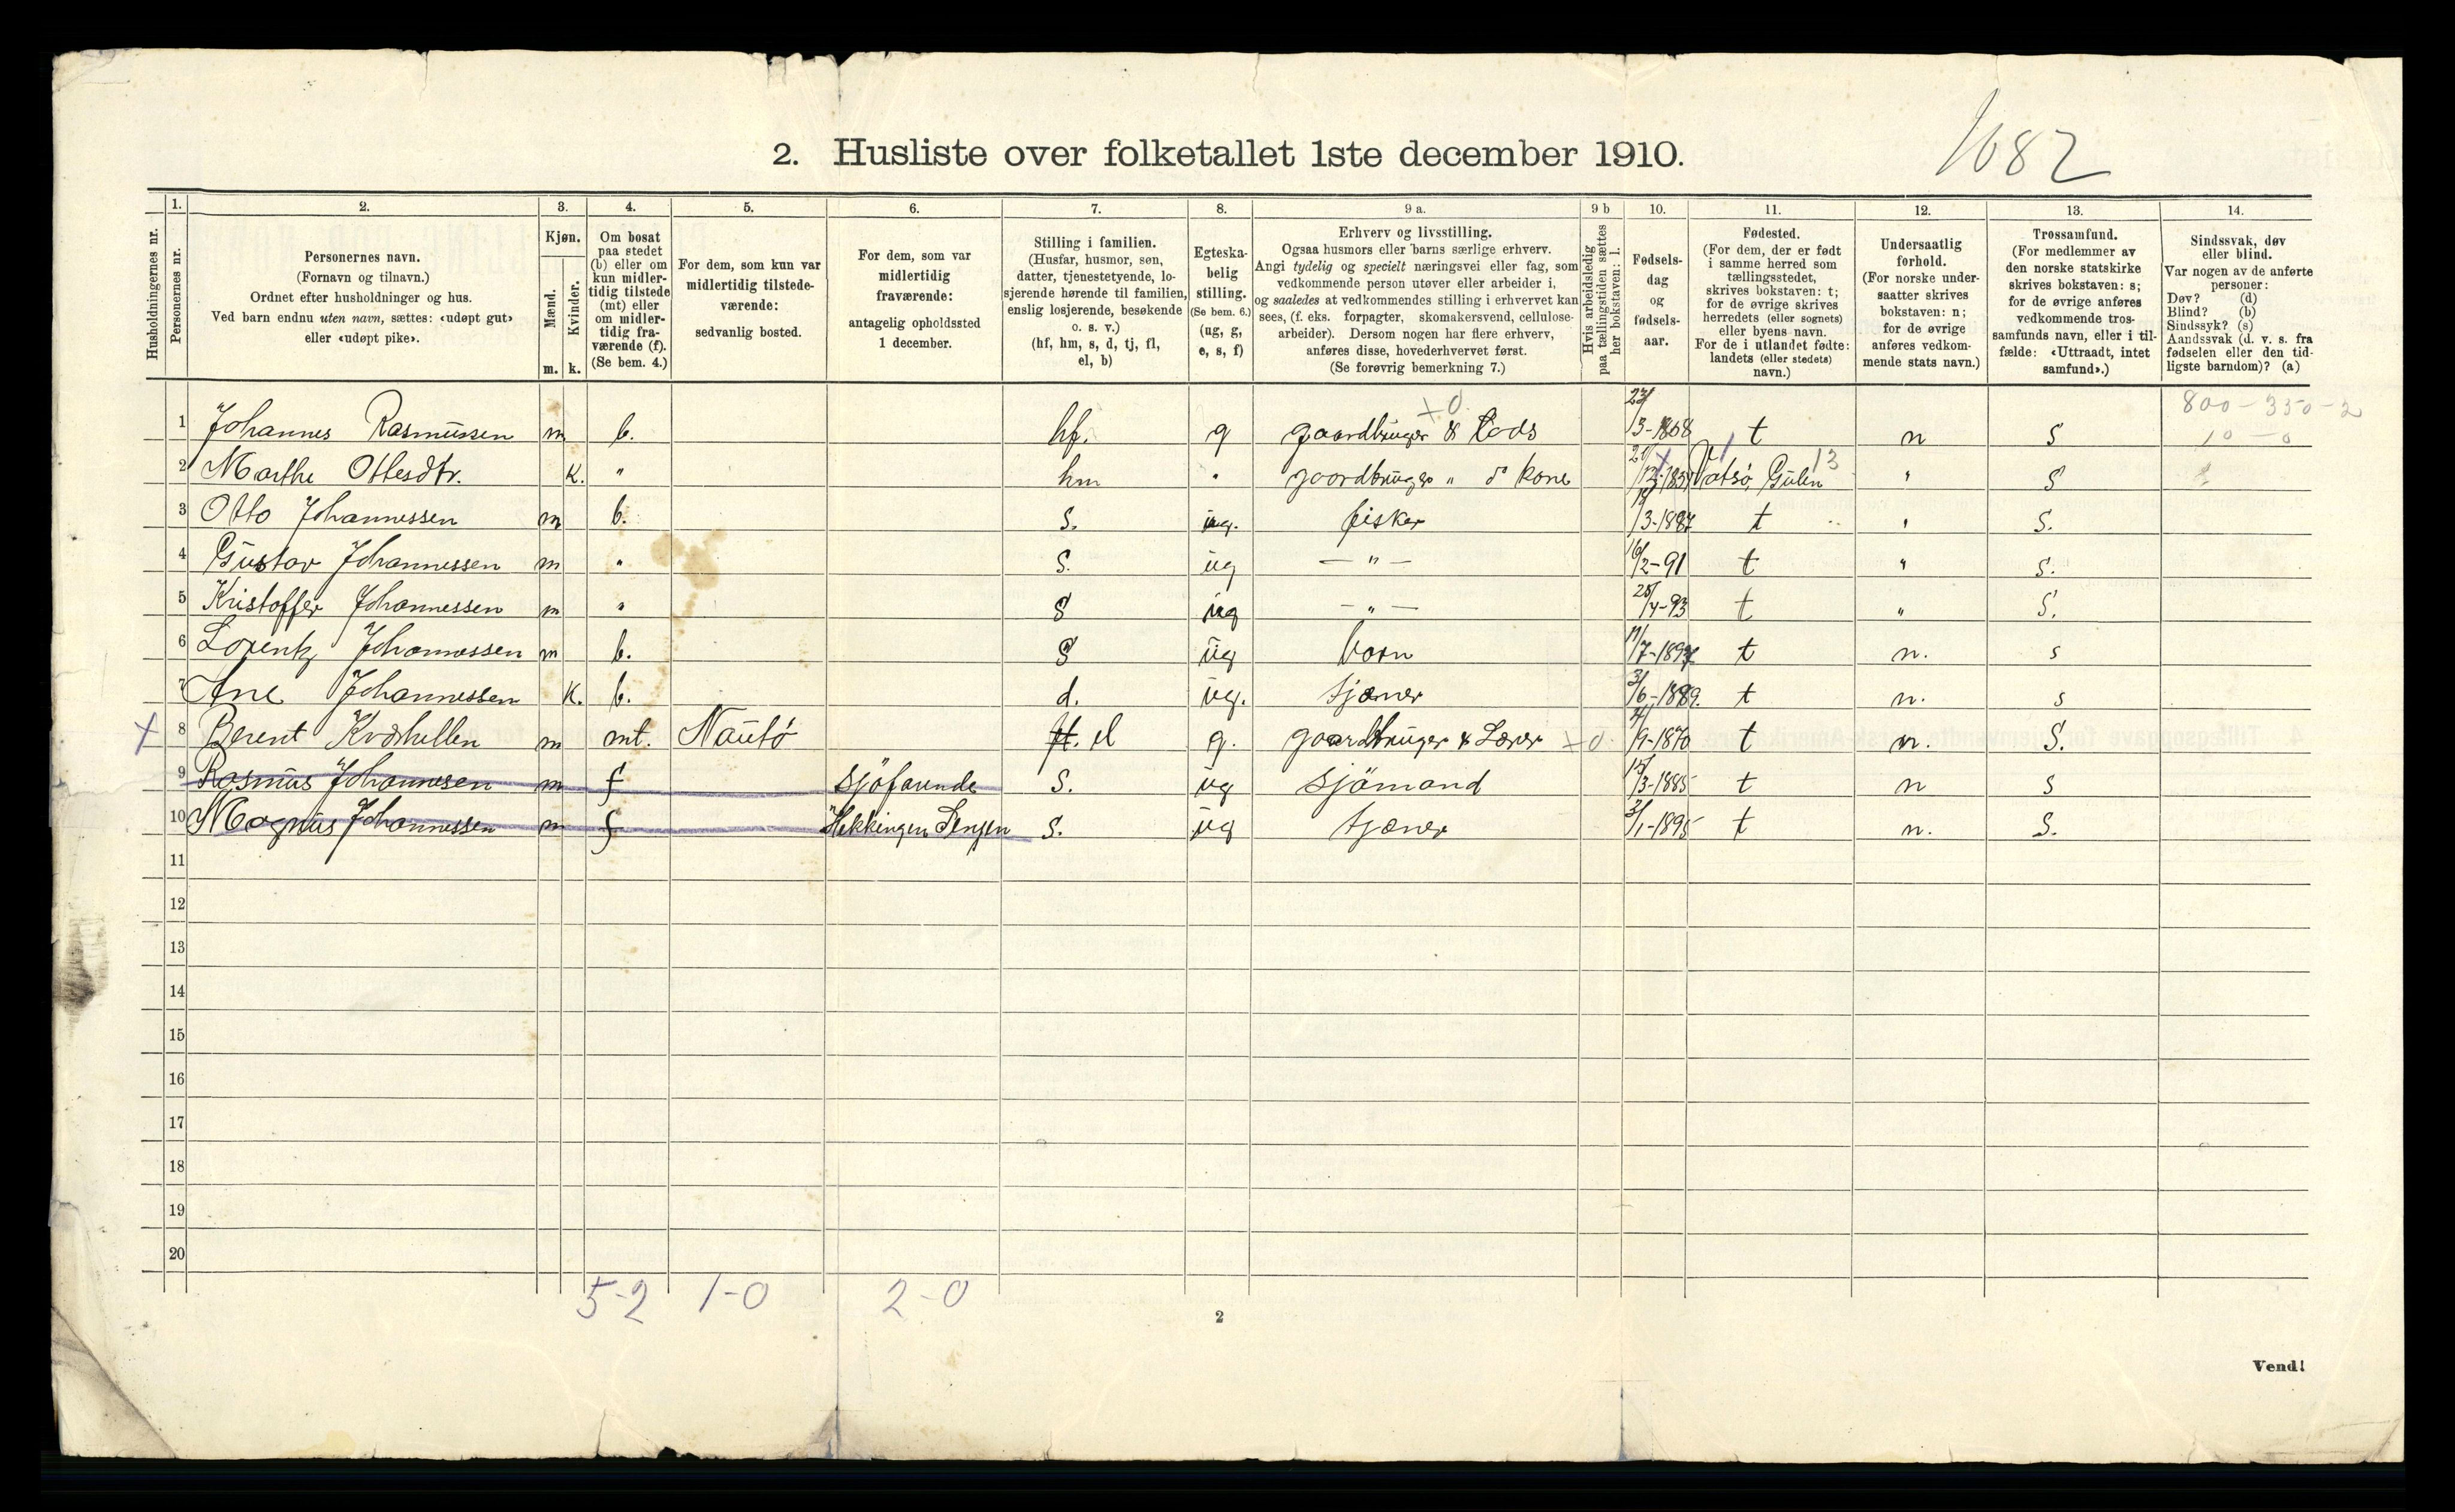 1682
2. Husliste over folketallet 1ste december 1910.
1. 2. 3. 4. 5. 6. 7. 8. 9 a. 9 b 10. 11. 12. 13. 14.
Husholdningernes nr.
Personernes nr.
Personernes navn.
(Fornavn og tilnavn.)
Ordnet efter husholdninger og hus.
Ved barn endnu uten navn, sættes: «udøpt gut»
eller «udøpt pike».
Kjøn.
Mænd.
Kvinder.
m. k.
Om bosat
paa stedet
(b) eller om
kun midler-
tidig tilstede
(mt) eller
om midler-
tidig fra-
værende (f).
(Se bem. 4.)
For dem, som kun var
midlertidig tilstede-
værende:
sedvanlig bosted.
For dem, som var
midlertidig
fraværende:
antagelig opholdssted
1 december.
Stilling i familien.
(Husfar, husmor, søn,
datter, tjenestetyende, lo-
sjerende hørende til familien,
enslig losjerende, besøkende
o. s. v.)
(hf, hm, s, d, tj, fl,
el, b)
Egteska-
belig
stilling.
(Se bem. 6.)
(ug, g,
e, s, f)
Erhverv og livsstilling.
Ogsaa husmors eller barns særlige erhverv.
Angi tydelig og specielt næringsvei eller fag, som
vedkommende person utøver eller arbeider i,
og saaledes at vedkommendes stilling i erhvervet kan
sees, (f. eks. forpagter, skomakersvend, cellulose-
arbeider). Dersom nogen har flere erhverv,
anføres disse, hovederhvervet først.
(Se forøvrig bemerkning 7.)
Hvis arbeidsledig
paa tællingstiden sættes
her bokstaven: l.
Fødsels-
dag
og
fødsels-
aar.
Fødested.
(For dem, der er født
i samme herred som
tællingsstedet,
skrives bokstaven: t;
for de øvrige skrives
herredets (eller sognets)
eller byens navn.
For de i utlandet fødte:
landets (eller stedets)
navn.)
Undersaatlig
forhold.
(For norske under-
saatter skrives
bokstaven: n;
for de øvrige
anføres vedkom-
mende stats navn.)
Trossamfund.
(For medlemmer av
den norske statskirke
skrives bokstaven: s;
for de øvrige anføres
vedkommende tros-
samfunds navn, eller i til-
fælde: «Uttraadt, intet
samfund».)
Sindssvak, døv
eller blind.
Var nogen av de anførte
personer:
Døv? (d)
Blind? (b)
Sindssyk? (s)
Aandssvak (d. v. s. fra
fødselen eller den tid-
ligste barndom)? (a)
+0 800-350-2
1 Johannes Rasmussen m b. hf. g gaardbruger & 23/3-1868 t n s 10-0
2 Marthe Ottesdtr. K. " hm " gaardbruger " kone Gulen 13 " s
3 Otto Johannessen m b. s. ug. fisker /3-1887 t " S.
4 Gustav Johannessen m " S. ug — " — 16/2-91 t " S.
5 Kristoffer Johannessen m " S ug — " — 25/4-93 t " S.
6 Lorentz Johannessen m b. S ug barn /7-1897 t n. s
7 Ane Johannessen K. b. d. ug. tjæner 3/6-1889. t n. s
X 8 Berent Kvdhellen m mt. Nautö el g. gaardbruger & Lærer +0 /9-1870 t n. S.
9 Rasmus Johannesen m f sjöfarende S. ug sjömand 15/3-1885 t n s
10 Magnus Johannessen m f Hekkingen Senjen S. ug tjæner 3/1-1895 t n. S.
11
12
13
14
15
16
17
18
19
20
5-2 1-0 2-0
2
Vend!